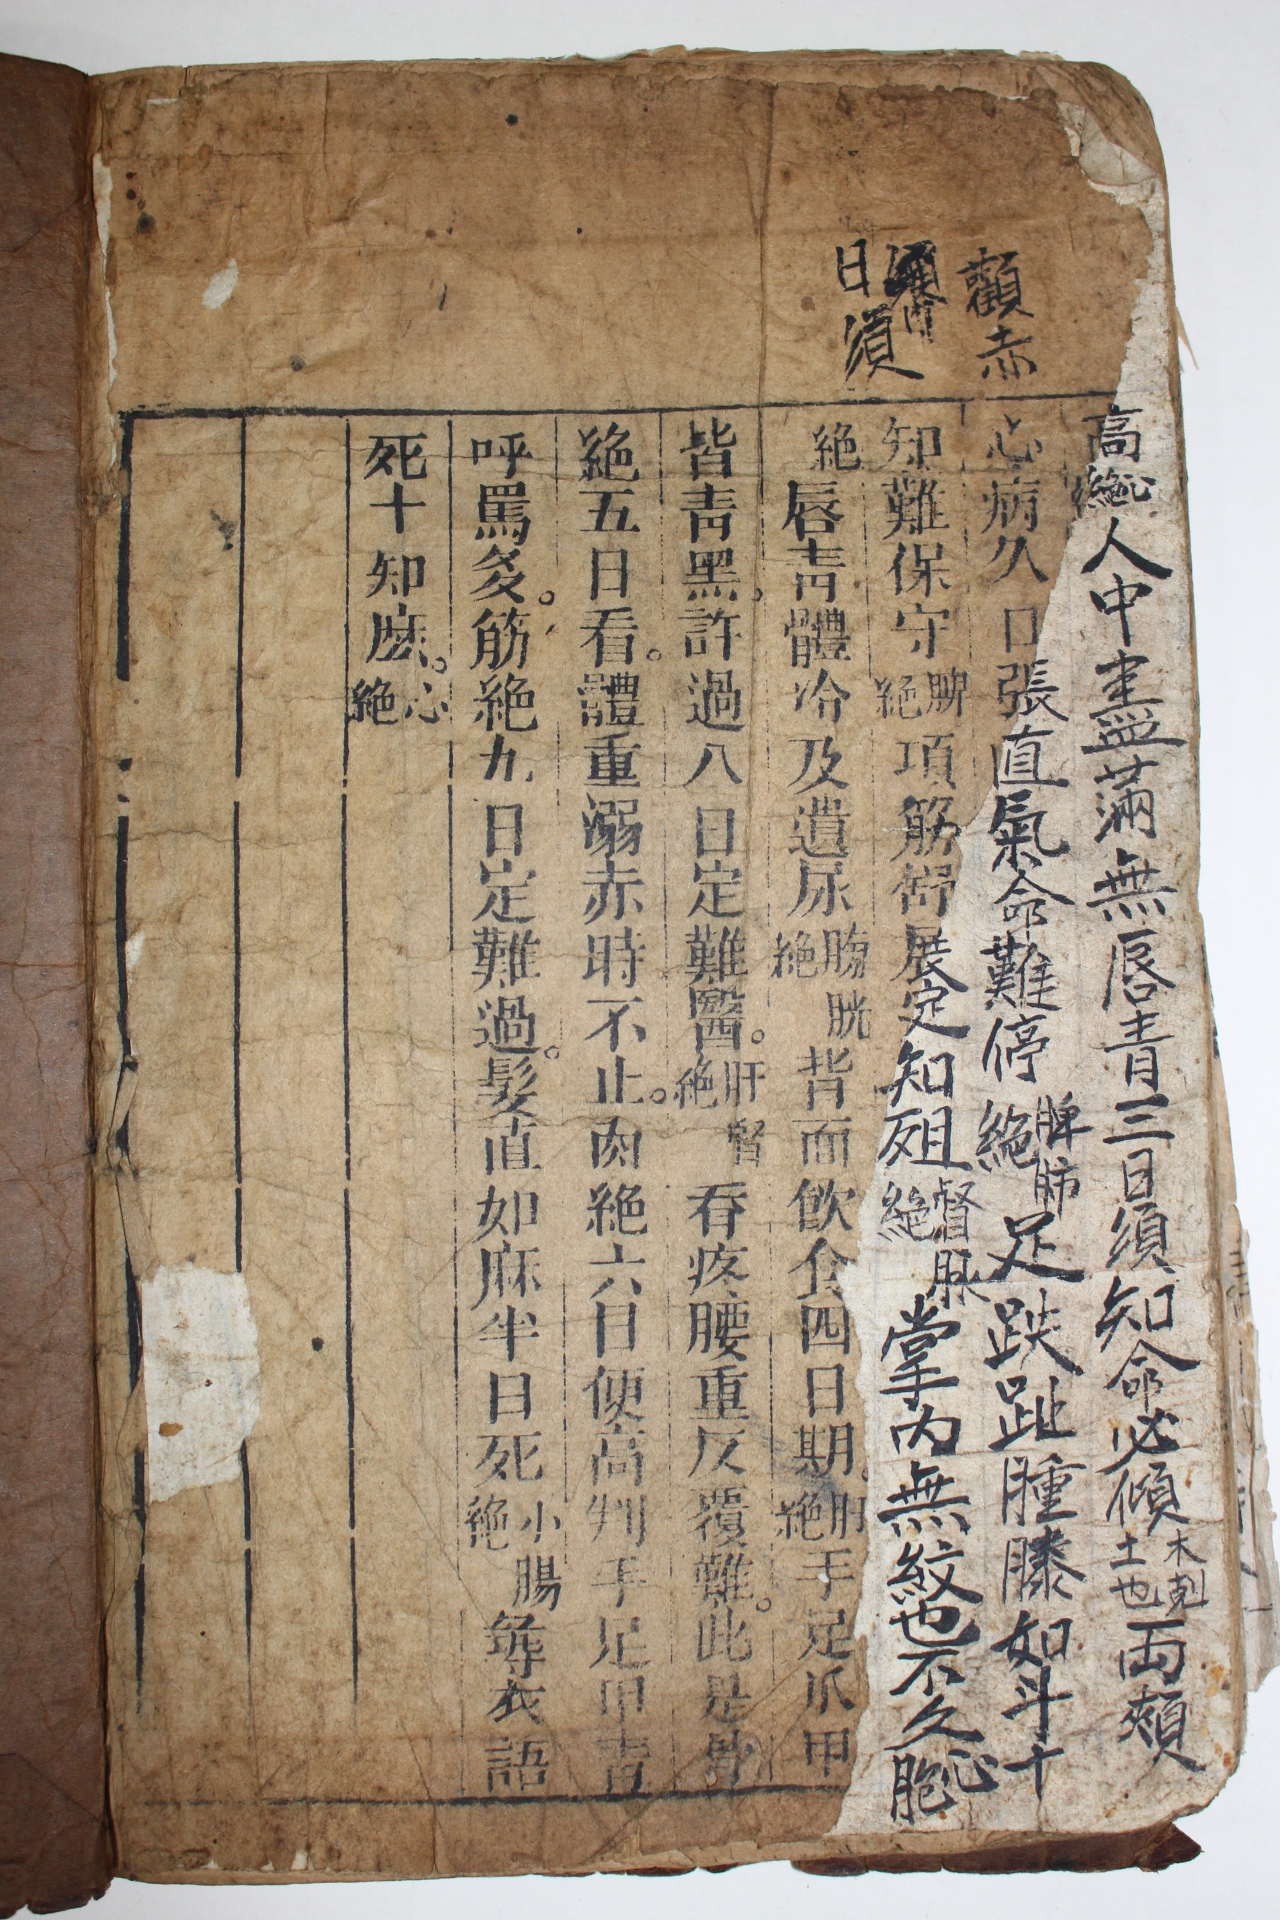 顴赤
日須
高心絶人中盡滿無唇青三日須知命必傾木剋土也両頰
心病久口張直氣命難停脾肺絶足趺趾腫膝如斗十
知難保守脾絶項筋舒展定知殂督脉絶掌內無紋也不久心胞
絶唇青體冷及遺尿膀胱絶背面飲食四日期肝絶手足爪甲
皆青黑許過八日定難醫。肝腎絶脊疼腰重反覆難。此是骨
絶五日看。體重溺赤時不止。肉絶六日便高判手足甲青
呼罵多。筋絶九日定難過。髮直如麻半日死小腸絶尋衣語
死十知麽。心絶